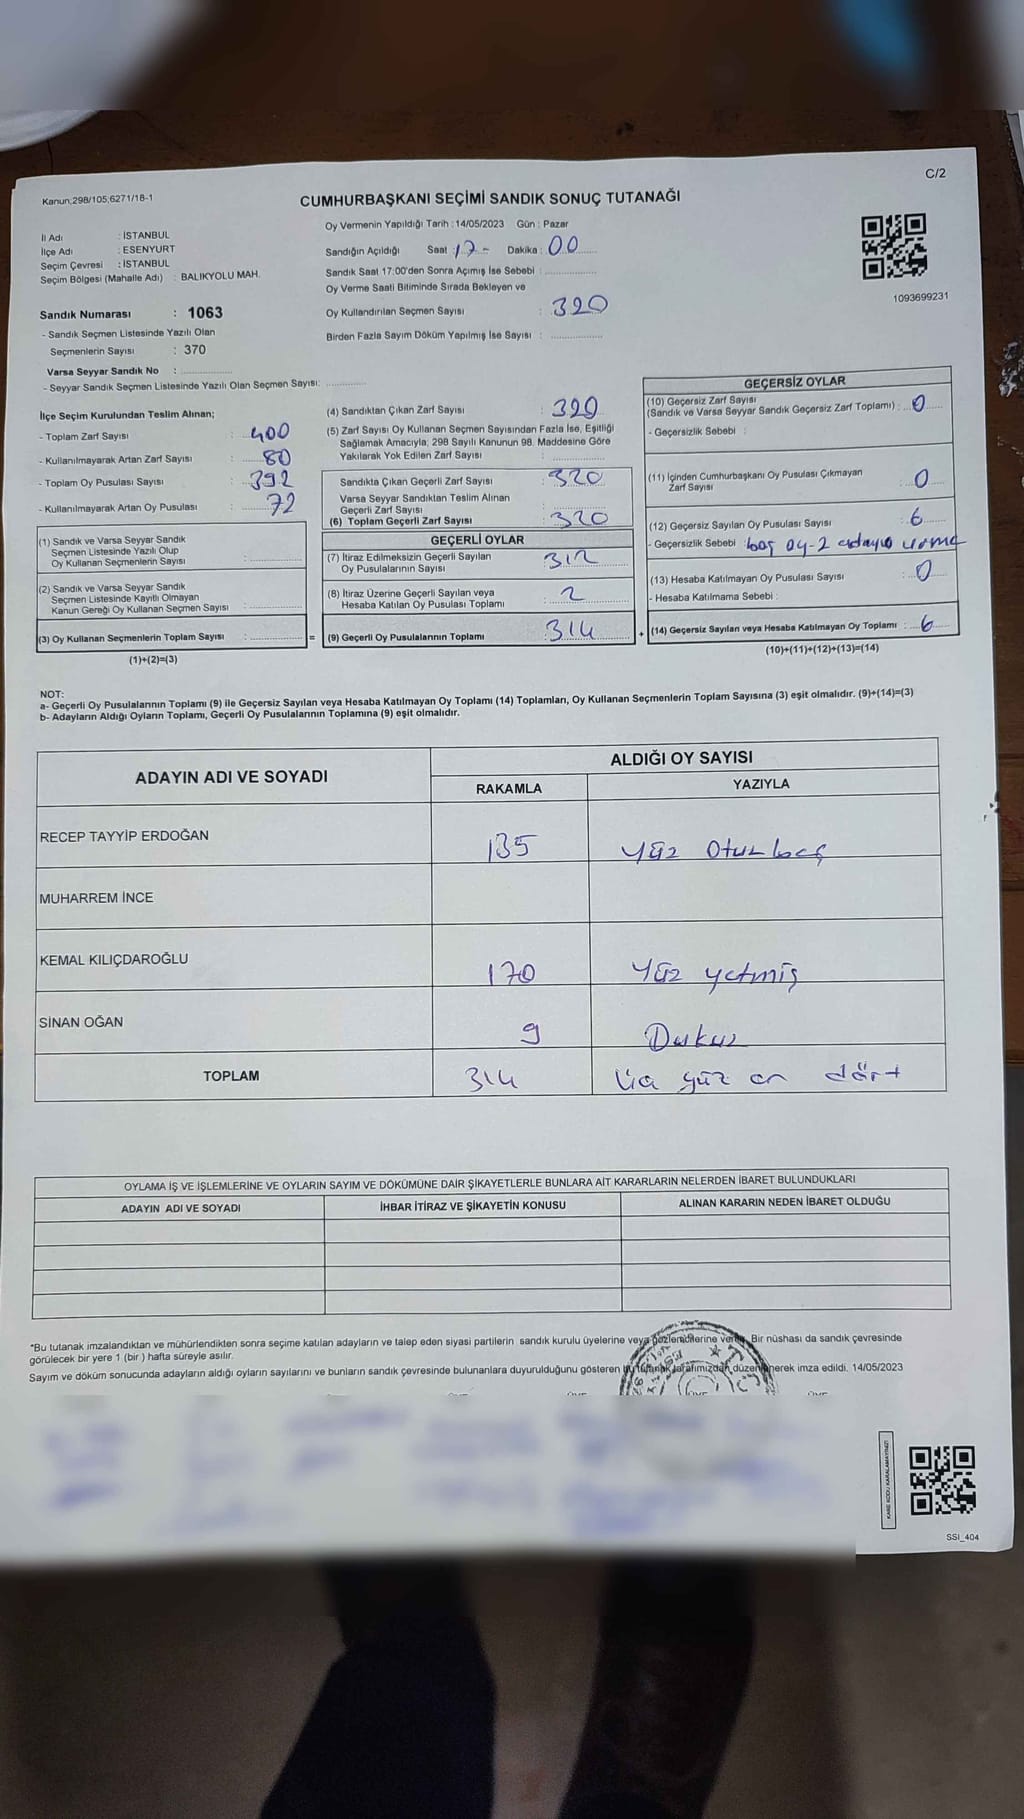 C/2
Kanun;298/105;6271/18-1
CUMHURBAŞKANI SEÇİMİ SANDIK SONUÇ TUTANAĞI
İl Adı : İSTANBUL
İlçe Adı : ESENYURT
Seçim Çevresi : İSTANBUL
Seçim Bölgesi (Mahalle Adı) : BALIKYOLU MAH.
Sandık Numarası : 1063
- Sandık Seçmen Listesinde Yazılı Olan
Seçmenlerin Sayısı : 370
Varsa Seyyar Sandık No :
- Seyyar Sandık Seçmen Listesinde Yazılı Olan Seçmen Sayısı:
Oy Vermenin Yapıldığı Tarih : 14/05/2023 Gün : Pazar
Sandığın Açıldığı Saat : 17 - Dakika : 00
Sandık Saat 17:00'den Sonra Açımış İse Sebebi :
Oy Verme Saati Bitiminde Sırada Bekleyen ve
Oy Kullandırılan Seçmen Sayısı : 320
Birden Fazla Sayım Döküm Yapılmış İse Sayısı :
1093699231
İlçe Seçim Kurulundan Teslim Alınan;
- Toplam Zarf Sayısı : 400
- Kullanılmayarak Artan Zarf Sayısı : 80
- Toplam Oy Pusulası Sayısı : 392
- Kullanılmayarak Artan Oy Pusulası : 72
(1) Sandık ve Varsa Seyyar Sandık
Seçmen Listesinde Yazılı Olup
Oy Kullanan Seçmenlerin Sayısı :
(2) Sandık ve Varsa Seyyar Sandık
Seçmen Listesinde Kayıtlı Olmayan
Kanun Gereği Oy Kullanan Seçmen Sayısı :
(3) Oy Kullanan Seçmenlerin Toplam Sayısı :
(1)+(2)=(3)
=
(4) Sandıktan Çıkan Zarf Sayısı : 320
(5) Zarf Sayısı Oy Kullanan Seçmen Sayısından Fazla İse, Eşitliği
Sağlamak Amacıyla; 298 Sayılı Kanunun 98. Maddesine Göre
Yakılarak Yok Edilen Zarf Sayısı :
Sandıkta Çıkan Geçerli Zarf Sayısı : 320
Varsa Seyyar Sandıktan Teslim Alınan
Geçerli Zarf Sayısı :
(6) Toplam Geçerli Zarf Sayısı : 320
GEÇERLİ OYLAR
(7) İtiraz Edilmeksizin Geçerli Sayılan
Oy Pusulalarının Sayısı : 312
(8) İtiraz Üzerine Geçerli Sayılan veya
Hesaba Katılan Oy Pusulası Toplamı : 2
(9) Geçerli Oy Pusulalarının Toplamı 314
+
GEÇERSİZ OYLAR
(10) Geçersiz Zarf Sayısı
(Sandık ve Varsa Seyyar Sandık Geçersiz Zarf Toplamı) : 0
- Geçersizlik Sebebi :
(11) İçinden Cumhurbaşkanı Oy Pusulası Çıkmayan
Zarf Sayısı : 0
(12) Geçersiz Sayılan Oy Pusulası Sayısı : 6
- Geçersizlik Sebebi : boş oy-2 adaya
(13) Hesaba Katılmayan Oy Pusulası Sayısı : 0
- Hesaba Katılmama Sebebi :
(14) Geçersiz Sayılan veya Hesaba Katılmayan Oy Toplamı : 6
(10)+(11)+(12)+(13)=(14)
NOT:
a- Geçerli Oy Pusulalarının Toplamı (9) ile Geçersiz Sayılan veya Hesaba Katılmayan Oy Toplamı (14) Toplamları, Oy Kullanan Seçmenlerin Toplam Sayısına (3) eşit olmalıdır. (9)+(14)=(3)
b- Adayların Aldığı Oyların Toplamı, Geçerli Oy Pusulalarının Toplamına (9) eşit olmalıdır.
ADAYIN ADI VE SOYADI ALDIĞI OY SAYISI
RAKAMLA YAZIYLA
RECEP TAYYİP ERDOĞAN 135 Yüz Otuz beş
MUHARREM İNCE
KEMAL KILIÇDAROĞLU 170 Yüz yetmiş
SİNAN OĞAN 9 Dokuz
TOPLAM 314 Üç yüz on dört
OYLAMA İŞ VE İŞLEMLERİNE VE OYLARIN SAYIM VE DÖKÜMÜNE DAİR ŞİKAYETLERLE BUNLARA AİT KARARLARIN NELERDEN İBARET BULUNDUKLARI
ADAYIN ADI VE SOYADI İHBAR İTİRAZ VE ŞİKAYETİN KONUSU ALINAN KARARIN NEDEN İBARET OLDUĞU
*Bu tutanak imzalandıktan ve mühürlendikten sonra seçime katılan adayların ve talep eden siyasi partilerin sandık kurulu üyelerine veya gözlemcilerine verilir. Bir nüshası da sandık çevresinde
görülecek bir yere 1 (bir ) hafta süreyle asılır.
Sayım ve döküm sonucunda adayların aldığı oyların sayılarını ve bunların sandık çevresinde bulunanlara duyurulduğunu gösteren bu tutanak tarafımızdan düzenlenerek imza edildi. 14/05/2023
KARE KODU KARALAMAYINIZ!
SSI_404